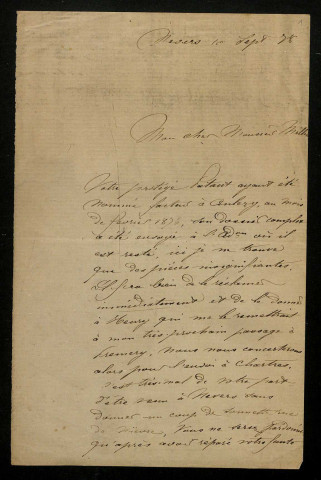 Nevers 10 Sept 78
Mon cher Monsieur
Votre protégé ayant été
nommé facteur à au mois
de février 1874, son dossier complet
a été envoyé à où il
est resté, ici je ne trouve
que des pièces insignifiantes,
Il fera bien de le réclamer
immédiatement et de le donner
à Henry qui me le remettrait
à mon très prochain passage à
Nous nous concerterons
alors pour l'envoi à Chartres,
C'est très mal de votre part
d'être venu à Nevers sans
donner un coup de
Vous ne serez pardonné
qu'après avoir réparé votre faute